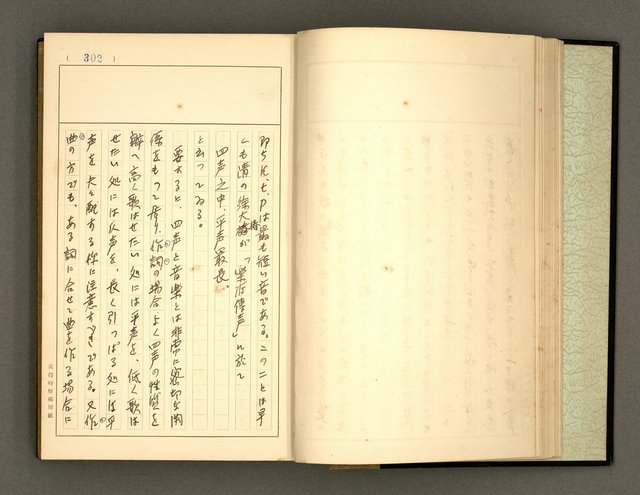 (302)
即ちk、t、pは最も短い音である。このことは早
くも清の徐大椿が「楽府傳声」に於て
四声之中、平声最長。
と云つてゐる。
要するに、四声と音楽とは非常に密切な関
係をもつて居り、作詞の場合よく四声の性質を
辨へ、高く歌はせたい処には平声を、低く歌は
せたい処には仄声を、長く引つぱる処には平
声を夫々配する様に注意すべきである。又作
曲の方でも、ある詞に合せて曲を作る場合に
呂得時原稿用紙